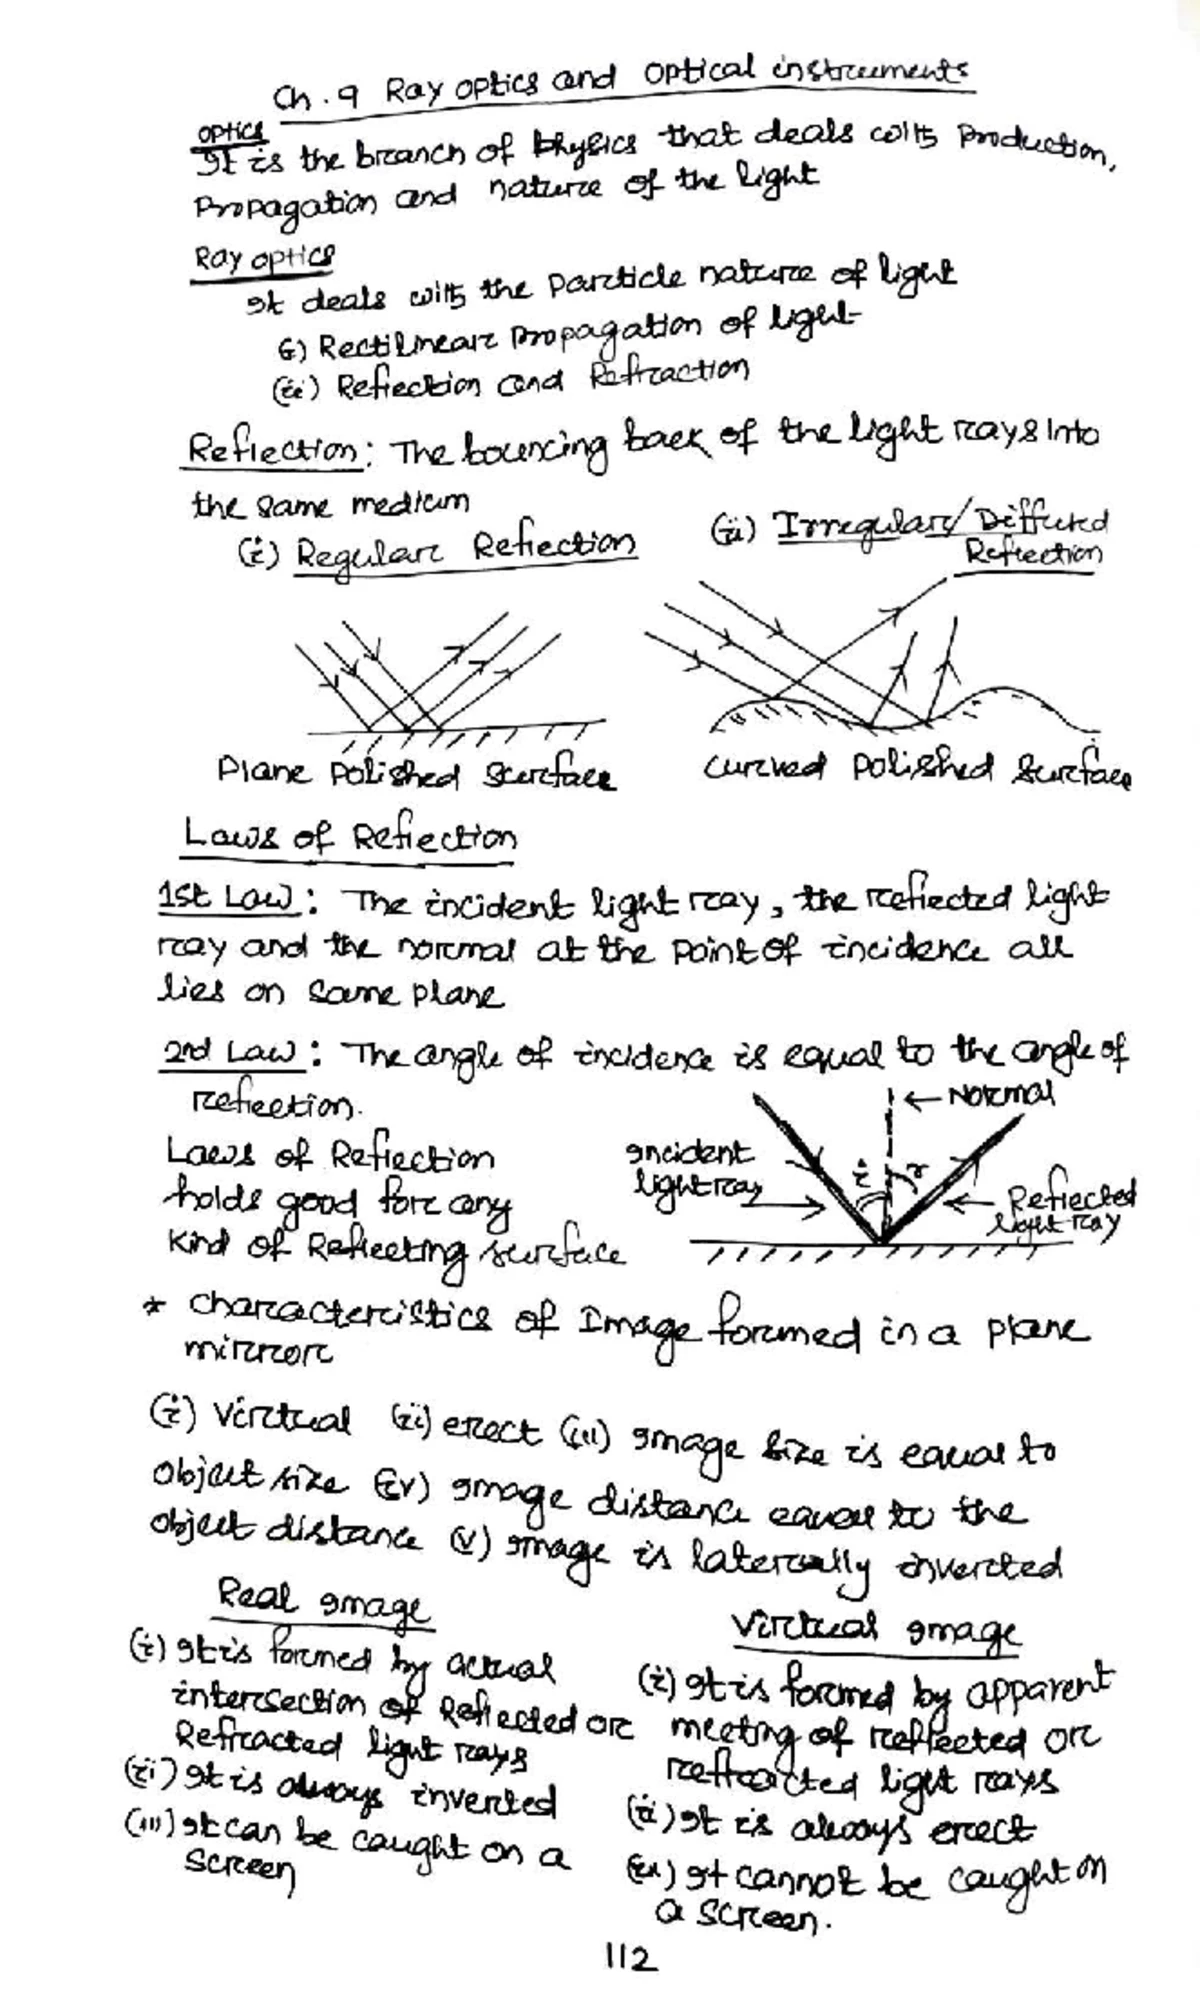 Ch. 9 Ray optics and optical instruments
optics
It is the branch of Physics that deals with Production,
Propagation and nature of the light
Ray optics
It deals with the Particle nature of light
(i) Rectilinear Propagation of light
(ii) Reflection and Refraction
Reflection: The bouncing back of the light rays into
the same medium
(i) Regular Reflection
(ii) Irregular/Diffused
Reflection
Plane Polished surface
curved Polished surface
Laws of Reflection
1st Law: The incident light ray, the reflected light
ray and the normal at the point of incidence all
lies on same plane
2nd Law: The angle of incidence is equal to the angle of
reflection.
← Normal
Laws of Reflection
holds good for any
Kind of Reflecting surface
Incident
light ray
i r
Reflected
light ray
* characteristics of Image formed in a plane
mirror
(i) Virtual (ii) erect (iii) Image size is equal to
object size (iv) Image distance equal to the
object distance (v) Image is laterally inverted
Real Image
(i) It is formed by actual
intersection of Reflected or
Refracted light rays
(ii) It is always inverted
(iii) It can be caught on a
screen
Virtual Image
(i) It is formed by apparent
meeting of reflected or
refracted light rays
(ii) It is always erect
(iii) It cannot be caught on
a screen.
112